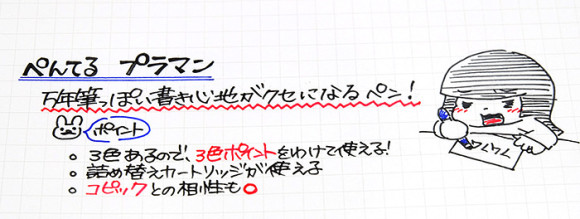 ぺんてる プラマン
万年筆っぽい書き心地がクセになるペン!
ポイント
○ 3色あるので、3色ポイントをわけて使える!
○ 詰め替えカートリッジが使える
○ コピックとの相性も○